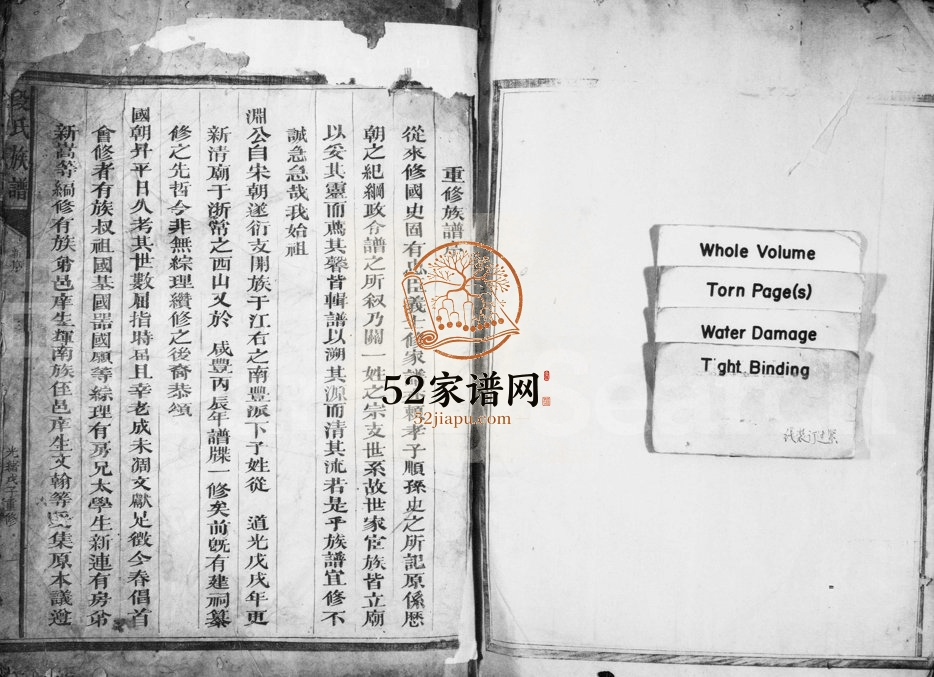 重修族譜
從來修國史固有忠臣義修家賴孝子順孫史之所記原係歷
朝之紀綱政令譜之所叙乃關一姓之宗支世系故世家宦族皆立廟
以妥其靈而薦其馨皆輯譜以溯其源而清其流若是乎族譜宜修不
誠急急哉我始祖
淵公自宋朝遂衍支開族于江右之南豐派下子姓從 道光戊戌年更
新清廟于浙幣之西山又於 咸豐丙辰年譜牒一修矣前既有建祠纂
修之先哲今非無綜理纘修之後裔恭頌
國朝昇平日久考其世數屈指時屆且幸老成未凋文獻足徵今春倡首
會修者有族叔祖國基國器國願等綜理有房兄太學生新連有房弟
新嵩等編修有族弟邑庠生輝南族侄邑庠生文翰等集原本議遵
段氏族譜
光緒戊子重修
52家谱网
52jiapu.com
Whole Volume
Torn Page(s)
Water Damage
Tight Binding